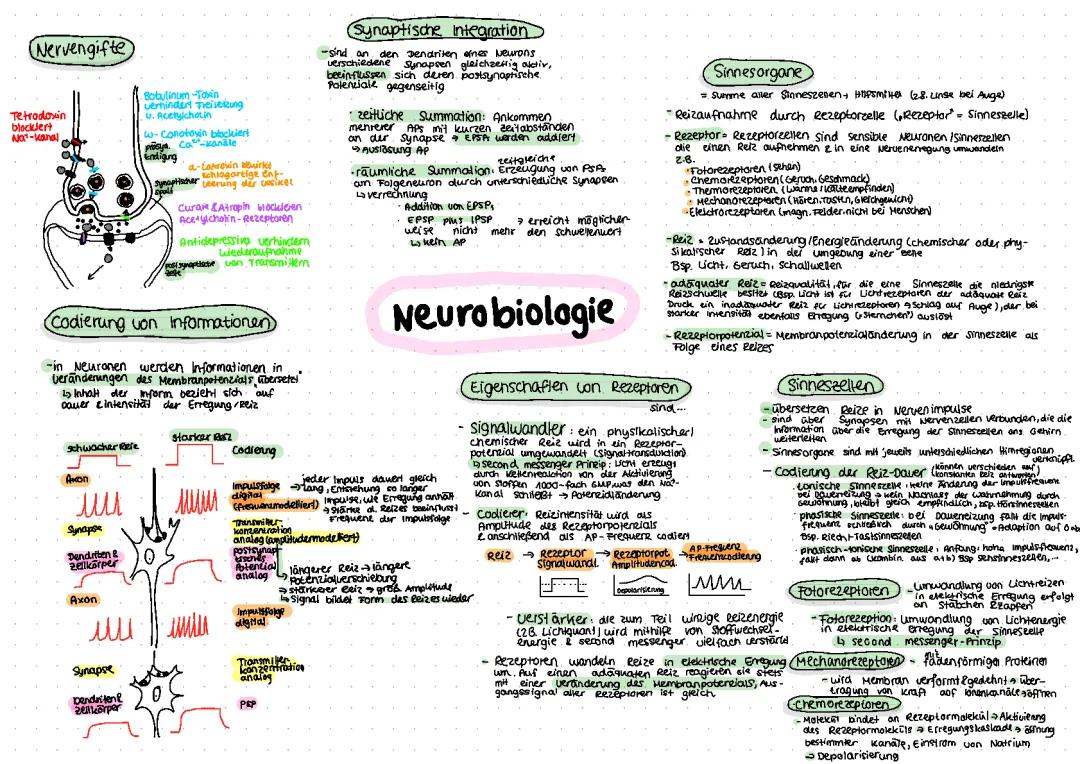 Nervengifte
Tetrodoxin
blockiert
Na⁺-Kanal
Botulinum-Toxin
verhindert Freisetzung
v. Acetylcholin
ω-Conotoxin blockiert
Ca²⁺-Kanäle
präsyn.
Endigung
α-Latroxin bewirkt
schlagartige Ent-
leerung der Vesikel
synaptischer
Spalt
Curare & Atropin blockieren
Acetylcholin-Rezeptoren
Antidepressiva verhindern
Wiederaufnahme
von Transmittern
postsynaptische
Seite
Synaptische Integration
- sind an den Dendriten eines Neurons
verschiedene Synapsen gleichzeitig aktiv,
beeinflussen sich deren postsynaptische
Potenziale gegenseitig
· zeitliche Summation: Ankommen
mehrerer APs mit kurzen Zeitabständen
an der Synapse → EPSPs werden addiert
↳ Auslösung AP
· räumliche Summation: zeitgleiche Erzeugung von PSPs
am Folgeneuron durch unterschiedliche Synapsen
↳ Verrechnung
· Addition von EPSPs
· EPSP plus IPSP → erreicht möglicher-
weise nicht mehr den Schwellenwert
↳ kein AP
Sinnesorgane
= Summe aller Sinneszellen + Hilfsmittel (z.B. Linse bei Auge)
- Reizaufnahme durch Rezeptorzelle („Rezeptor" = Sinneszelle)
- Rezeptor = Rezeptorzellen sind sensible Neuronen/Sinneszellen
die einen Reiz aufnehmen & in eine Nervenerregung umwandeln
z.B.
· Fotorezeptoren (sehen)
· Chemorezeptoren (Geruch, Geschmack)
· Thermorezeptoren (Wärme/Kälteempfinden)
· Mechanorezeptoren (Hören, Tasten, Gleichgewicht)
· Elektrorezeptoren (magn. Felder: nicht bei Menschen)
- Reiz = Zustandsänderung/Energieänderung (chemischer oder phy-
sikalischer Reiz) in der Umgebung einer Seite
Bsp. Licht, Geruch, Schallwellen
- adäquater Reiz = Reizqualität, für die eine Sinneszelle die niedrigste
Reizschwelle besitzt (Bsp. Licht ist für Lichtrezeptoren der adäquate Reiz
Druck ein inadäquater Reiz für Lichtrezeptoren → Schlag auf Auge), der bei
starker Intensität ebenfalls Erregung („Sternchen") auslöst
- Rezeptorpotenzial = Membranpotenzialänderung in der Sinneszelle als
Folge eines Reizes
Neurobiologie
Codierung von Informationen
- in Neuronen werden Informationen in
Veränderungen des Membranpotenzials „übersetzt"
↳ Inhalt der Inform. bezieht sich auf
Dauer & Intensität der Erregung/Reiz
schwacher Reiz
starker Reiz
Codierung
Axon
Impulsfolge
digital
(frequenzmodelliert)
→ jeder Impuls dauert gleich
lang, Entstehung so langer
Impulse, wie Erregung anhält
→ Stärke d. Reizes beeinflusst
Frequenz der Impulsfolge
Synapse
Transmitter-
konzentration
analog (amplitudermodelliert)
Dendriten &
Zellkörper
postsynap-
tisches
Potential
analog
→ längerer Reiz → längere
Potenzialverschiebung
→ stärkerer Reiz → groß. Amplitude
↳ Signal bildet Form des Reizes wieder
Axon
Impulsfolge
digital
Synapse
Transmitter-
konzentration
analog
Dendriten &
Zellkörper
PSP
Eigenschaften von Rezeptoren
sind...
- Signalwandler: ein physikalischer/
chemischer Reiz wird in ein Rezeptor-
potenzial umgewandelt (Signaltransduktion)
↳ second messenger Prinzip: Licht erzeugt
durch Kettenreaktion von der Aktivierung
von Stoffen 1000-fach GMP, was den Na⁺-
Kanal schließt → Potenzialänderung
- Codierer: Reizintensität wird als
Amplitude des Rezeptorpotenzials
& anschließend als AP-Frequenz codiert
Reiz → Rezeptor
Signalwandl.
→ Rezeptorpot.
Amplitudencod.
→ AP-Frequenz
Frequenzcodierung
Depolarisierung
- Verstärker: die zum Teil winzige Reizenergie
(z.B. Lichtquant) wird mithilfe von Stoffwechsel-
energie & second messenger vielfach verstärkt
- Rezeptoren wandeln Reize in elektrische Erregung
um. Auf einen adäquaten Reiz reagieren sie stets
mit einer Veränderung des Membranpotenzials, Aus-
gangssignal aller Rezeptoren ist gleich.
Sinneszellen
- übersetzen Reize in Nervenimpulse
- sind über Synapsen mit Nervenzellen verbunden, die die
Information über die Erregung der Sinneszellen ans Gehirn
weiterleiten
- Sinnesorgane sind mit jeweils unterschiedlichen Hirnregionen
verknüpft
- Codierung der Reiz-Dauer (können verschieden auf
konstanten Reiz antworten)
· tonische Sinneszelle: keine Änderung der Impulsfrequenz
bei Dauerreizung → kein Nachlass der Wahrnehmung durch
Gewöhnung, bleibt gleich empfindlich, Bsp. Hörsinneszellen
phasische Sinneszelle: bei Dauerreizung fällt die Impuls-
frequenz schließlich durch „Gewöhnung" = Adaption auf 0 ab
Bsp. Riech-/Tastsinneszellen
phasisch-tonische Sinneszelle: Anfang: hohe Impulsfrequenz,
fällt dann ab (Kombin. aus a+b) Bsp Sehsinneszellen,...
Fotorezeptoren
- Umwandlung von Lichtreizen
in elektrische Erregung erfolgt
an Stäbchen & Zapfen
- Fotorezeption: Umwandlung von Lichtenergie
in elektrische Erregung der Sinneszelle
↳ second messenger-Prinzip
Mechanorezeptoren
- mit fadenförmiger Proteinen
- wird Membran verformt & gedehnt → über-
tragung von Kraft auf Ionenkanäle → öffnen
Chemorezeptoren
- Molekül bindet an Rezeptormolekül → Aktivierung
des Rezeptormoleküls → Erregungskaskade → Öffnung
bestimmter Kanäle, Einstrom von Natrium
→ Depolarisierung